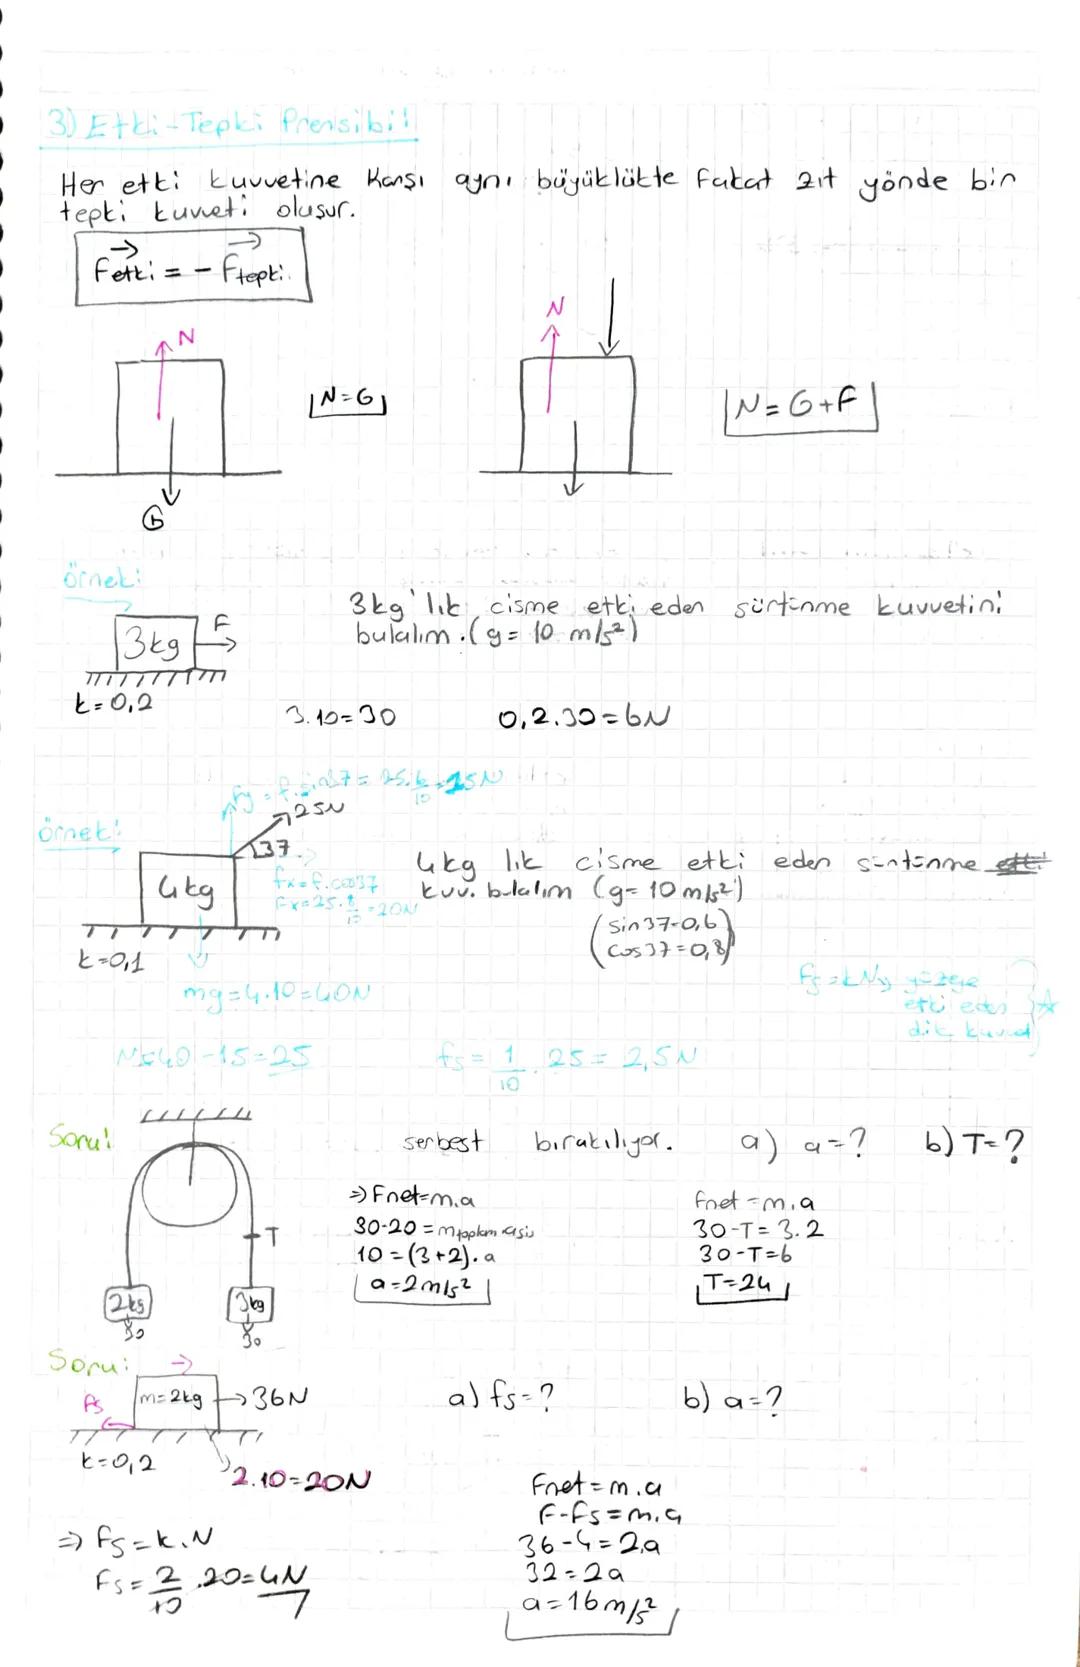 3) Etki-Tepki Prensibi!
Her etki kuvvetine karşı aynı büyüklükte fakat zıt yönde bir
tepki kuvveti oluşur.
Fetki = - Ftepki.
N
N
N=G
N=G+F
G
örnek:
3kg'lık cisme etki eden sürtünme kuvvetini
bulalım.(g= 10 m/s²)
F
3kg
k=0,2
3.10=30
0,2.30=6N
Fy=f.sin37= 25.6/10=15N
25N
örnek:
37
4kg lık cisme etki eden sürtünme
4kg
fx=f.cos37
kuv. bulalım (g= 10 m/s²)
Fx=25.8/10=20N
(sin37=0,6
cos37=0,8)
k=0,1
mg=4.10=40N
Fs=kN yüzeye
etki eden
dik kuvvet
N=40-15=25
fs= 1/10 . 25= 2,5N
Soru!
serbest bırakılıyor. a) a=? b) T=?
=) Fnet=m.a
30-20 = mtoplam
10=(3+2).a
a=2m/s²
Fnet=m.a
30-T= 3.2
30-T=6
T=24
T
2kg
3kg
30
Soru:
fs
m=2kg
36N
a) fs=? b) a=?
k=0,2
2.10=20N
=) fs=k.N
Fs= 2/10 .20=4N
Fnet=m.a
F-fs=m.a
36-4=2a
32=2a
a=16m/s²